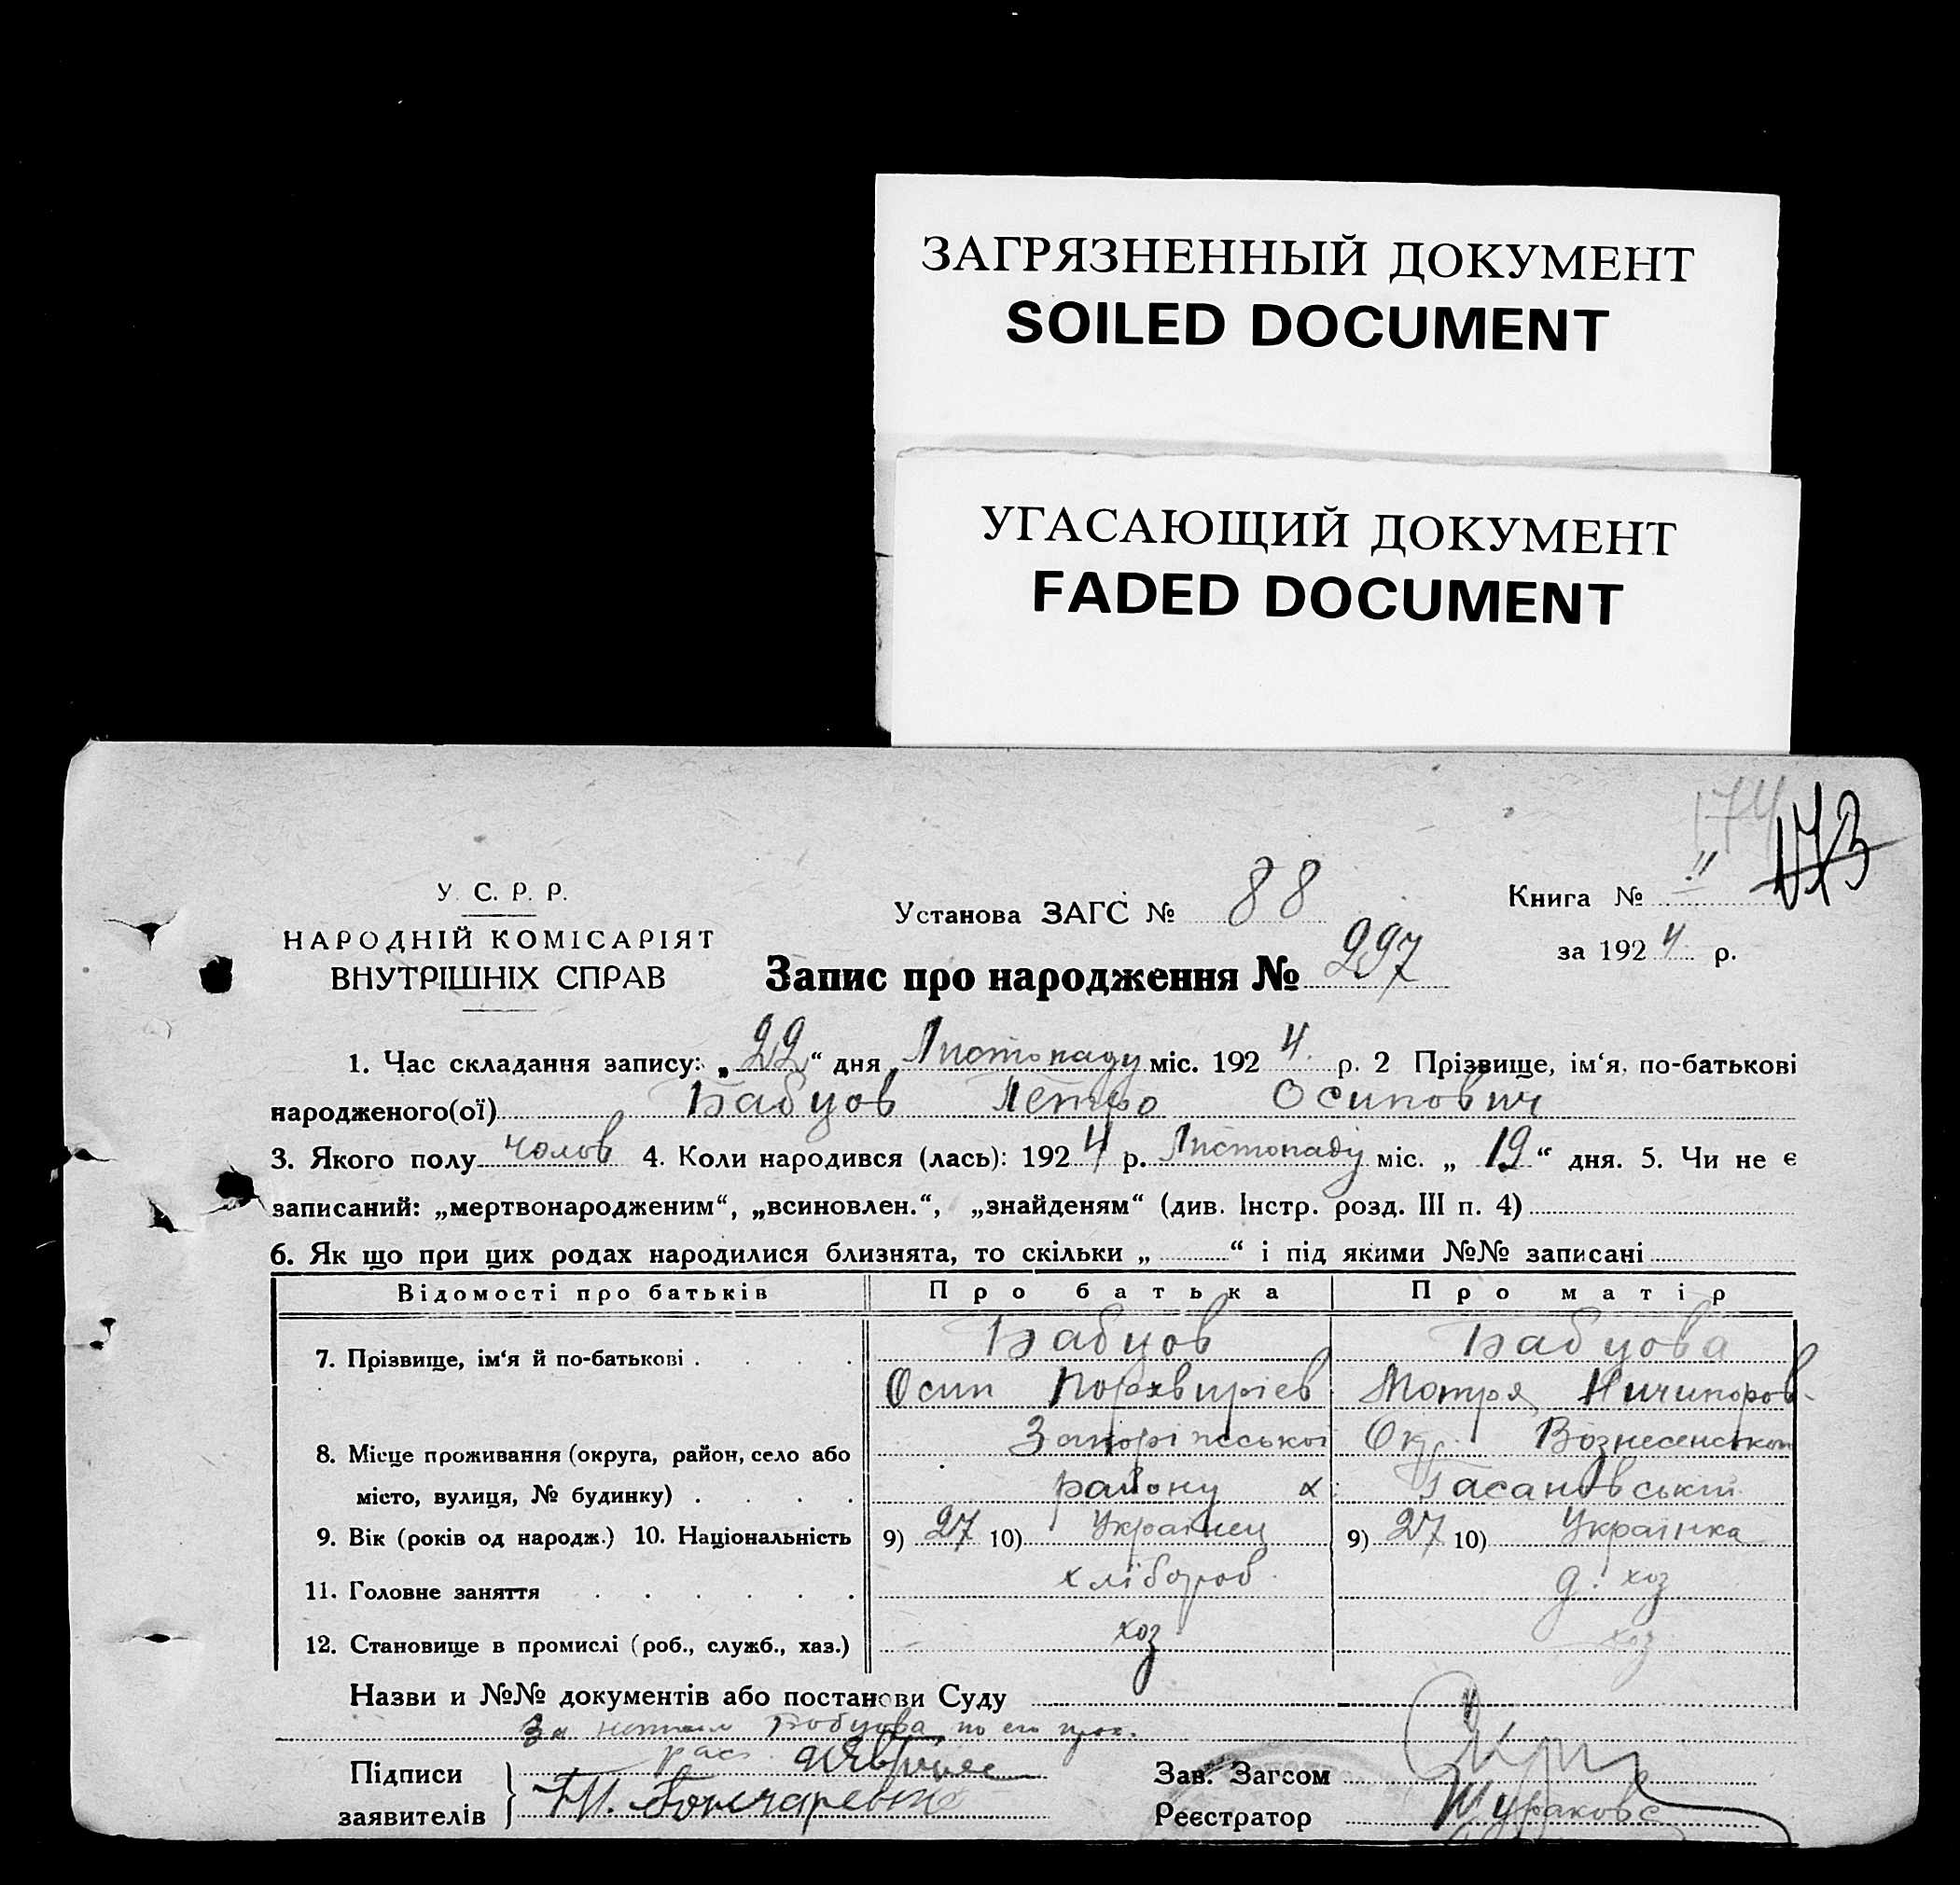 ЗАГРЯЗНЕННЫЙ ДОКУМЕНТ
SOILED DOCUMENT
УГАСАЮЩИЙ ДОКУМЕНТ
FADED DOCUMENT
174 173
У. С. Р. Р.
НАРОДНІЙ КОМІСАРІЯТ
ВНУТРІШНІХ СПРАВ
Установа ЗАГС № 88
Книга № 11
за 1924 р.
Запис про народження № 297
1. Час складання запису: „22“ дня Листопаду міс. 1924 р. 2 Прізвище, ім‘я, по-батькові
народженого(ої) Бабцов Петро Осипович
3. Якого полу чолов 4. Коли народився (лась): 1924 р. Листопаду міс. „19“ дня. 5. Чи не є
записаний: „мертвонародженим“, „всиновлен.“, „знайденям“ (див. Інстр. розд. III п. 4)
6. Як що при цих родах народилися близнята, то скільки „ “ і під якими №№ записані
Відомості про батьків Про батька Про матір
7. Прізвище, ім‘я й по-батькові Бабцов Бабцова
Осип Порхвиріев Мотря Ничипоров
8. Місце проживання (округа, район, село або Окр. Вознесенської
місто, вулиця, № будинку) району х
9. Вік (років од народж.) 10. Національність 9) 27 10) Українец 9) 27 10) Українка
11. Головне заняття хлібороб д. хоз
12. Становище в промислі (роб., служб., хаз.) хоз хоз
Назви и №№ документів або постанови Суду
За Бабцова по его
Підписи
заявителів
рас
Гончаренко
Зав. Загсом
Реєстратор